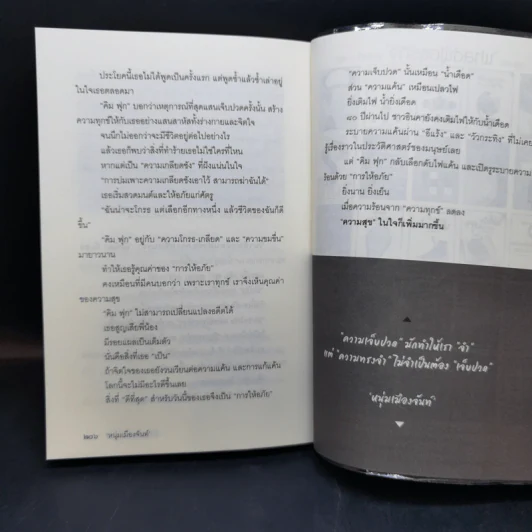 ประโยคนี้เธอไม่ได้พูดเป็นครั้งแรก แต่พูดซ้ำแล้วซ้ำเล่าอยู่
ในใจเธอตลอดมา
"คิม ฟุก" บอกว่าเหตุการณ์ที่สุดแสนเจ็บปวดครั้งนั้น สร้าง
ความทุกข์ให้กับเธออย่างแสนสาหัสทั้งร่างกายและจิตใจ
จนนึกไม่ออกว่าจะมีชีวิตอยู่ต่อไปอย่างไร
แล้วเธอก็พบว่า สิ่งที่ทำร้ายเธอไม่ใช่ใครที่ไหน
หากแต่เป็น "ความเกลียดชัง" ที่ฝังแน่นในใจ
"การบ่มเพาะความเกลียดชังเอาไว้ สามารถฆ่าฉันได้"
เธอเริ่มสวดมนต์และให้อภัยแก่ศัตรู
"ฉันน่าจะโกรธ แต่เลือกอีกทางหนึ่ง แล้วชีวิตของฉันก็ดี
ขึ้น"
"คิม ฟุก" อยู่กับ "ความโกรธ-เกลียด" และ "ความขมขื่น"
มายาวนาน
ทำให้เธอรู้คุณค่าของ "การให้อภัย"
คงเหมือนที่มีคนบอกว่า เพราะเราทุกข์ เราจึงเห็นคุณค่า
ของความสุข
"คิม ฟุก" ไม่สามารถเปลี่ยนแปลงอดีตได้
เธอสูญเสียพี่น้อง
มีรอยแผลเป็นเต็มตัว
นั่นคือสิ่งที่เธอ "เป็น"
ถ้าจิตใจของเธอยังวนเวียนต่อความแค้น และการแก้แค้น
โลกนี้จะไม่มีอะไรดีขึ้นเลย
สิ่งที่ "ดีที่สุด" สำหรับวันนี้ของเธอจึงเป็น "การให้อภัย"
"หนุ่มเมืองจันท์"
"ความเจ็บปวด" นั้นเหมือน "น้ำเดือด"
ส่วน "ความแค้น" เหมือนเปลวไฟ
ยิ่งเติมไฟ น้ำยิ่งเดือด
๘๐ ปีผ่านไป ชาวยิวบางคนยังคงเติมไฟให้กับน้ำเดือด
ระบายความแค้นผ่าน "อีแร้ง" และ "วัวกระทิง" ที่ไม่เคย
รู้เรื่องราวในประวัติศาสตร์ของมนุษย์เลย
แต่ "คิม ฟุก" กลับเลือกดับไฟแค้น และเปิดรูระบายความ
ร้อนด้วย "การให้อภัย"
ยิ่งนาน ยิ่งเย็น
เมื่อความร้อนจาก "ความทุกข์" ลดลง
"ความสุข" ในใจก็เพิ่มมากขึ้น
"ความเจ็บปวด" มักทำให้เรา "จำ"
แต่ "ความทรงจำ" ไม่จำเป็นต้อง "เจ็บปวด"
"หนุ่มเมืองจันท์"